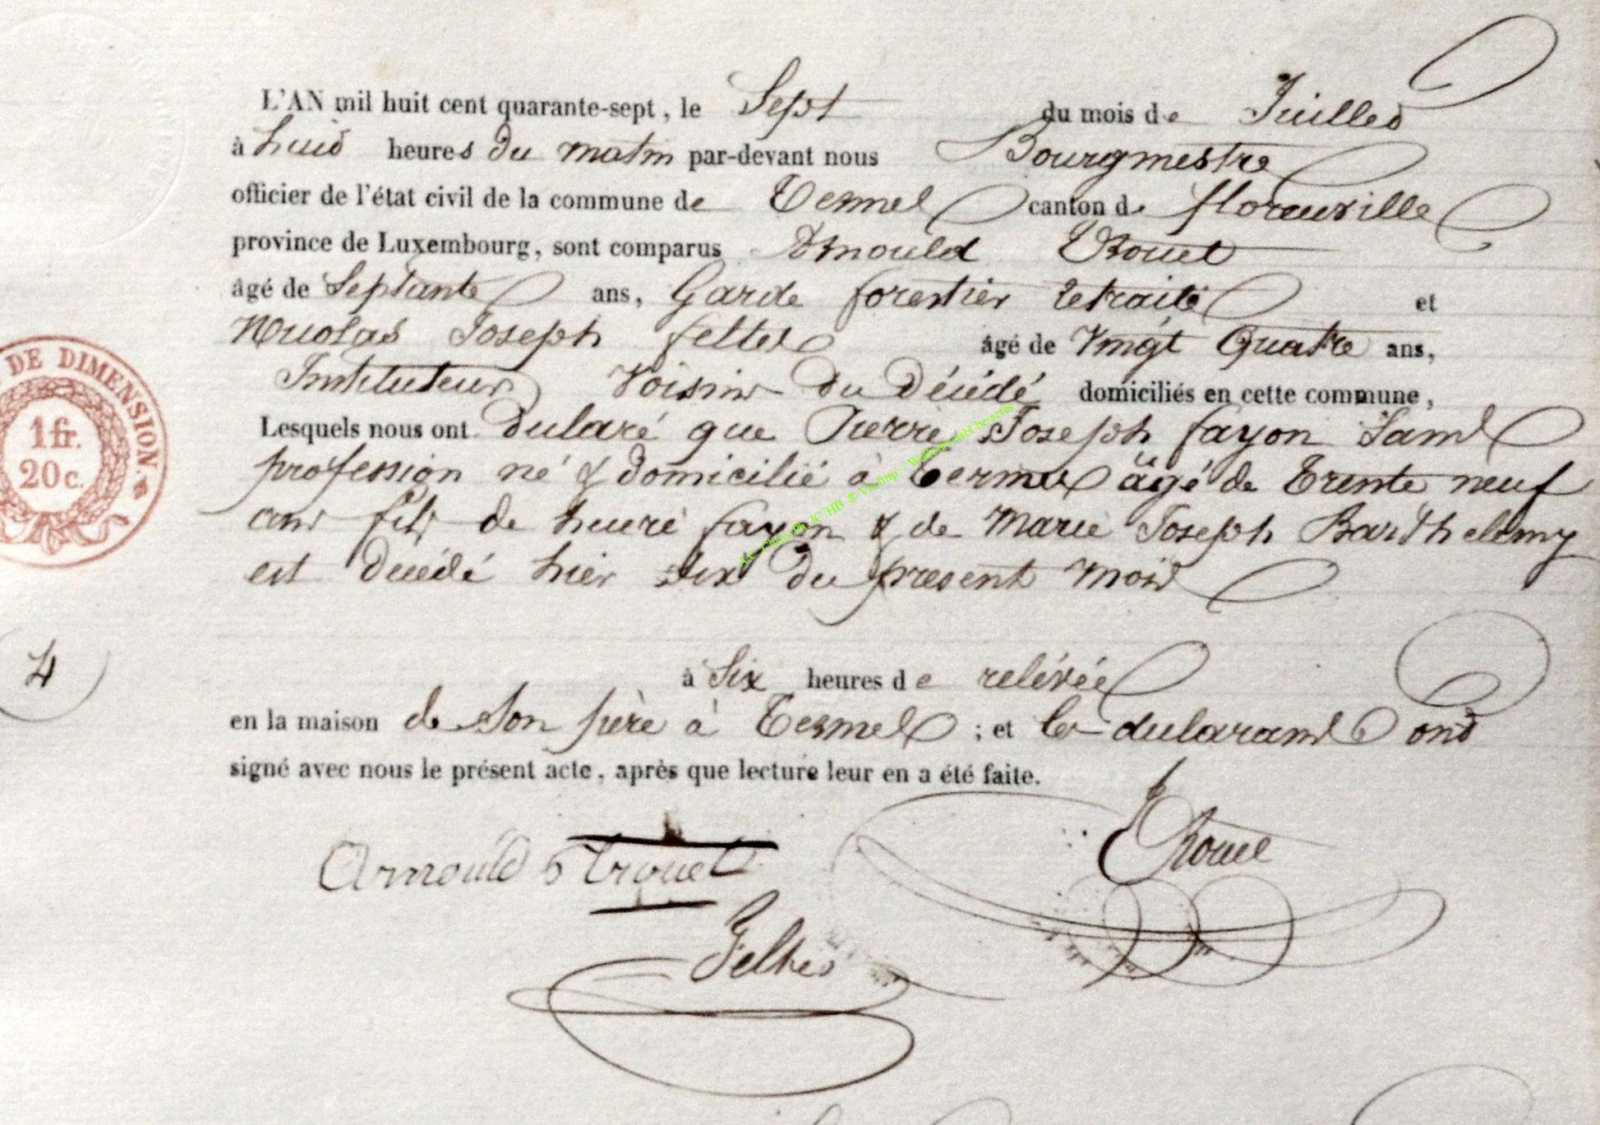 L'AN mil huit cent quarante-sept, le Sept du mois de Juillet
à huit heures du matin par-devant nous Bourgmestre
officier de l'état civil de la commune de Termes canton de florenville
province de Luxembourg, sont comparus Arnould Trouet
âgé de Septante ans, Garde forestier retraité et
Nicolas Joseph feltes âgé de Vingt Quatre ans,
Instituteur Voisins du Décédé domiciliés en cette commune,
Lesquels nous ont déclaré que Pierre Joseph fayon Sans
profession né & domicilié à Termes âgé de Trente neuf
ans fils de fayon & de Marie Joseph Barthelemy
est Décédé hier Six du present mois
à Six heures de relévée
en la maison de Son père à Termes ; et les déclarants ont
signé avec nous le présent acte, après que lecture leur en a été faite.
DE DIMENSION.
1 fr.
20 c.
4
Arnould Trouet
Trouet
Feltes